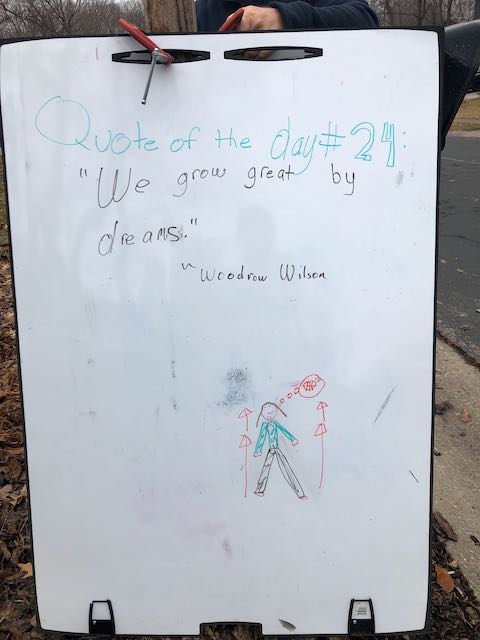 Quote of the day #24:
"We grow great by
dreams."
~ Woodrow Wilson